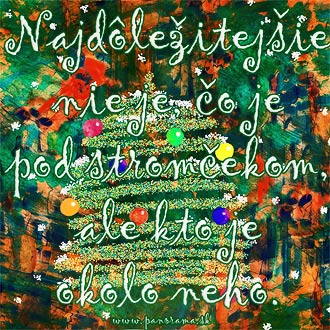 Najdôležitejšie
nie je, čo je
pod stromčekom,
ale kto je
okolo neho.
www.panorama.sk